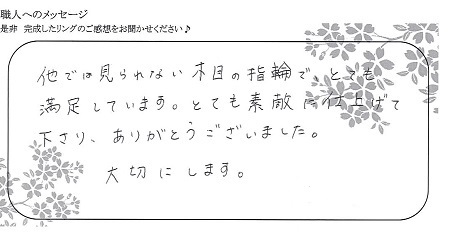 職人へのメッセージ
是非 完成したリングのご感想をお聞かせください♪
他では見られない木目の指輪で、とても
満足しています。とても素敵に仕上げて
下さり、ありがとうございました。
大切にします。